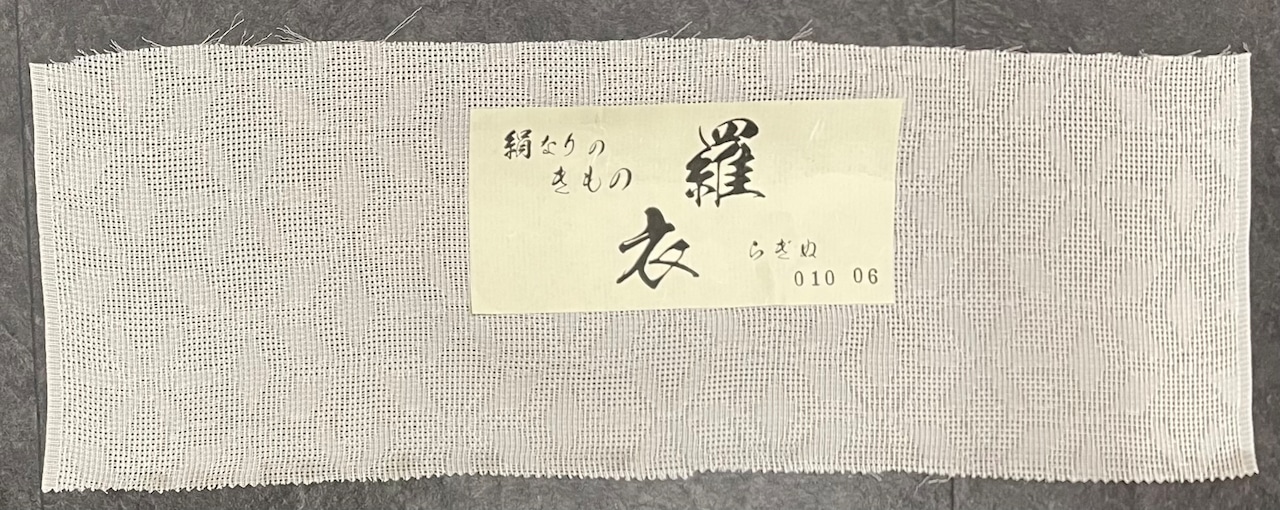 絹なりの
きもの
羅
衣
らぎぬ
010 06